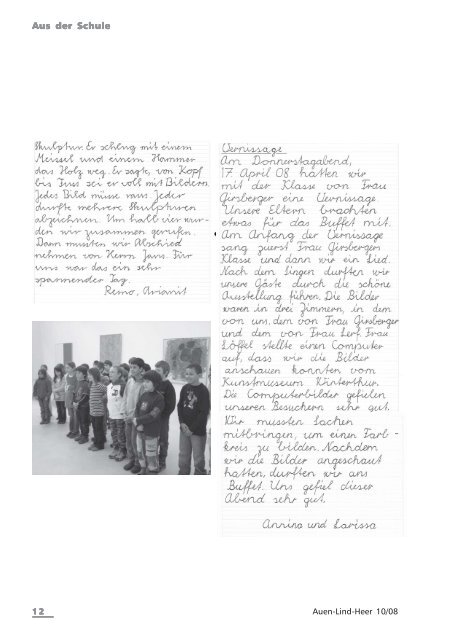 Aus der Schule
Skulptur. Er schlug mit einem
Meissel und einem Hammer
das Holz weg. Er sagte, von Kopf
bis Fuss sei er voll mit Bildern.
Jedes Bild müsse raus. Jeder
durfte mehrere Skulpturen
abzeichnen. Um halb vier wur-
den wir zusammen gerufen.
Dann mussten wir Abschied
nehmen von Herrn Jans. Für
uns war das ein sehr
spannender Tag.
Remo, Arianit
Vernissage
Am Donnerstagabend,
17 April 08 hatten wir
mit der Klasse von Frau
Girsberger eine Vernissage
Unsere Eltern brachten
etwas für das Buffet mit.
Am Anfang der Vernissage
sang zuerst Frau Girsbergers
Klasse und dann wir ein Lied.
Nach dem Singen durften wir
unsere Gäste durch die schöne
Ausstellung führen. Die Bilder
waren in drei Zimmern, in dem
von uns, dem von Frau Girsberger
und dem von Frau Lerf. Frau
Löffel stellte einen Computer
auf, dass wir die Bilder
anschauen konnten vom
Kunstmuseum Winterthur.
Die Computerbilder gefielen
unseren Besuchern sehr gut.
Wir mussten Sachen
mitbringen, um einen Farb-
kreis zu bilden. Nachdem
wir die Bilder angeschaut
hatten, durften wir ans
Buffet. Uns gefiel dieser
Abend sehr gut.
Annina und Larissa
12
Auen-Lind-Heer 10/08